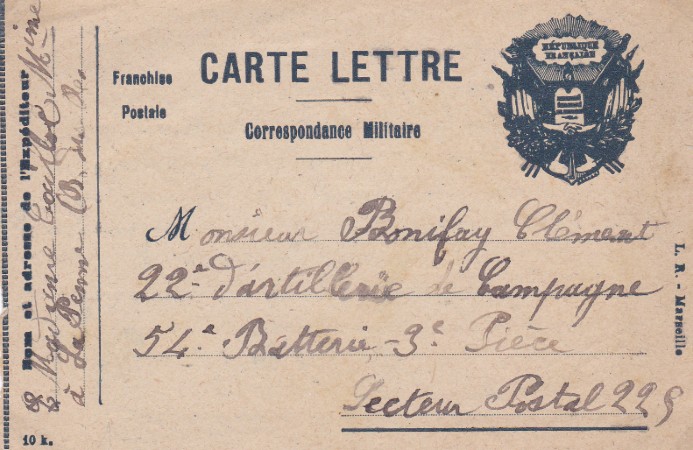 CARTE LETTRE
Franchise
Postale
Correspondance Militaire
RÉPUBLIQUE
FRANÇAISE
Monsieur Bonifay Clément
22e d'artillerie de Campagne
54e Batterie - 3e Pièce
Secteur Postal 229
Nom et adresse de l'Expéditeur
à La Penne
L. R. - Marseille
10 k.